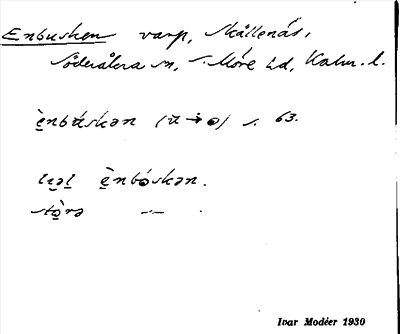 Enbusken varp, Skällenäs,
Söderåkra sn, S. Möre hd, Kalm. l.
ènbúskən (ü → ɵ) s. 63.
lìəl ènbóskən.
stòrə —"— .
Ivar Modéer 1930